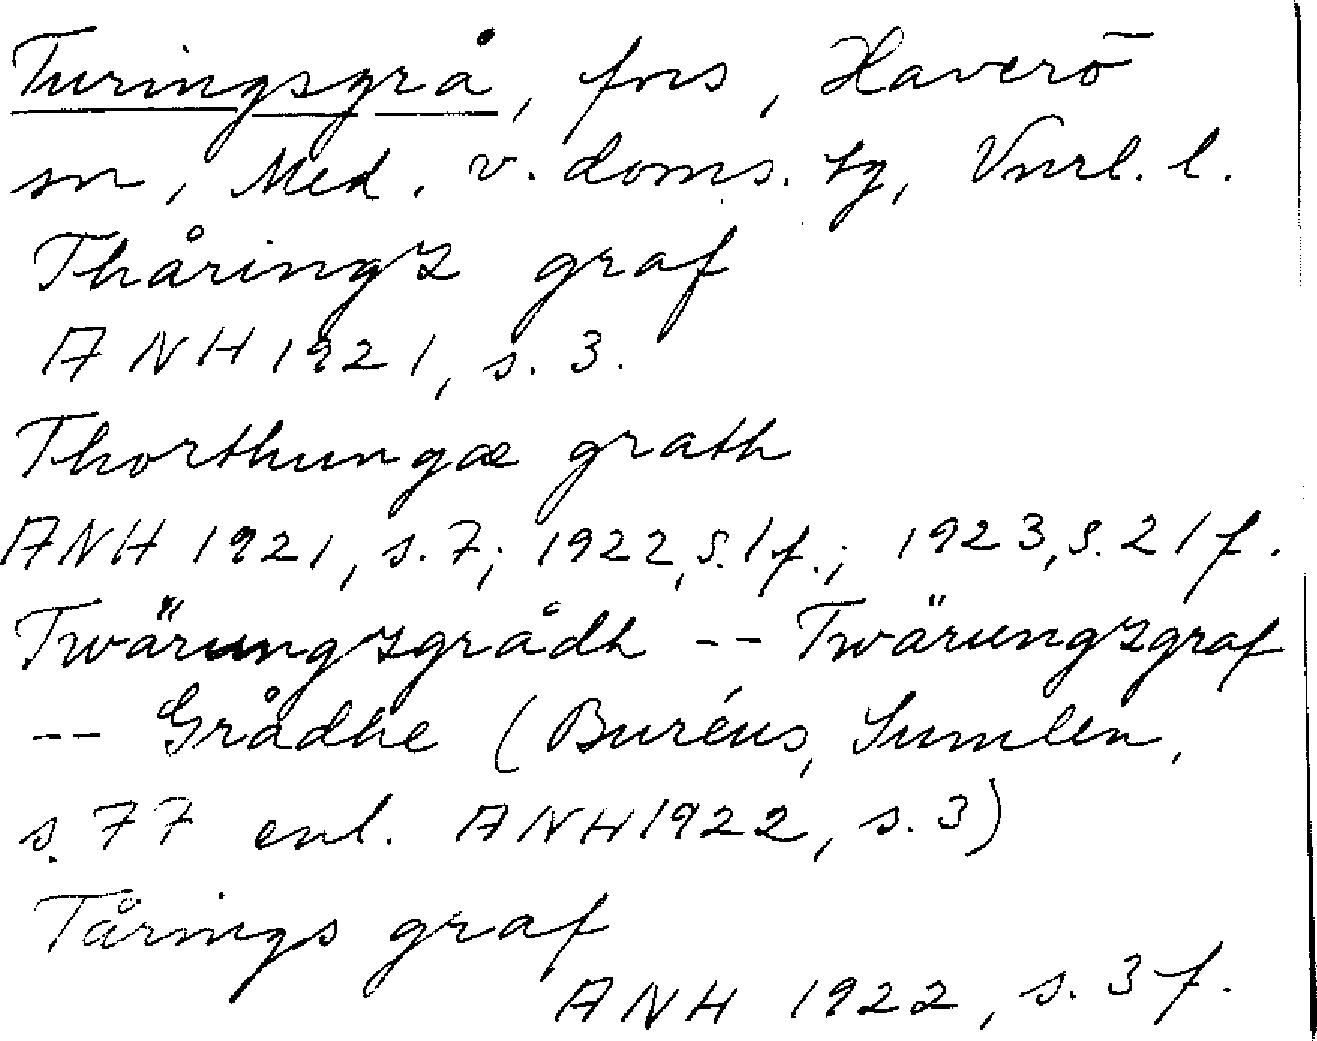 Turingsgrå, fns, Haverö
sn, Med. v. doms. tg, Vnrl. l.
Thåringz graf
ANH 1921, s. 3.
Thorthungæ grath
ANH 1921, s. 7; 1922, s. 1 f.; 1923, s. 21 f.
Twärungzgrådh -- Twärungzgraf
-- Grådhe (Buréus, Sumlen,
s. 77 enl. ANH 1922, s. 3)
Tårings graf
ANH 1922, s. 3 f.